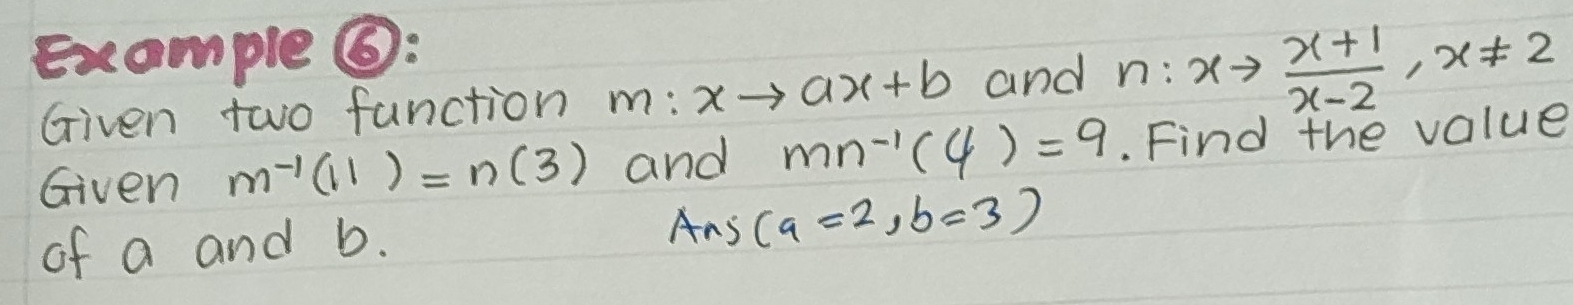 Example ⑥:
Given two function m : x → ax+b and n : x → \frac{x+1}{x-2} , x ≠ 2
Given m⁻¹(11) = n(3) and mn⁻¹(4) = 9. Find the value
of a and b. Ans (a = 2, b = 3)